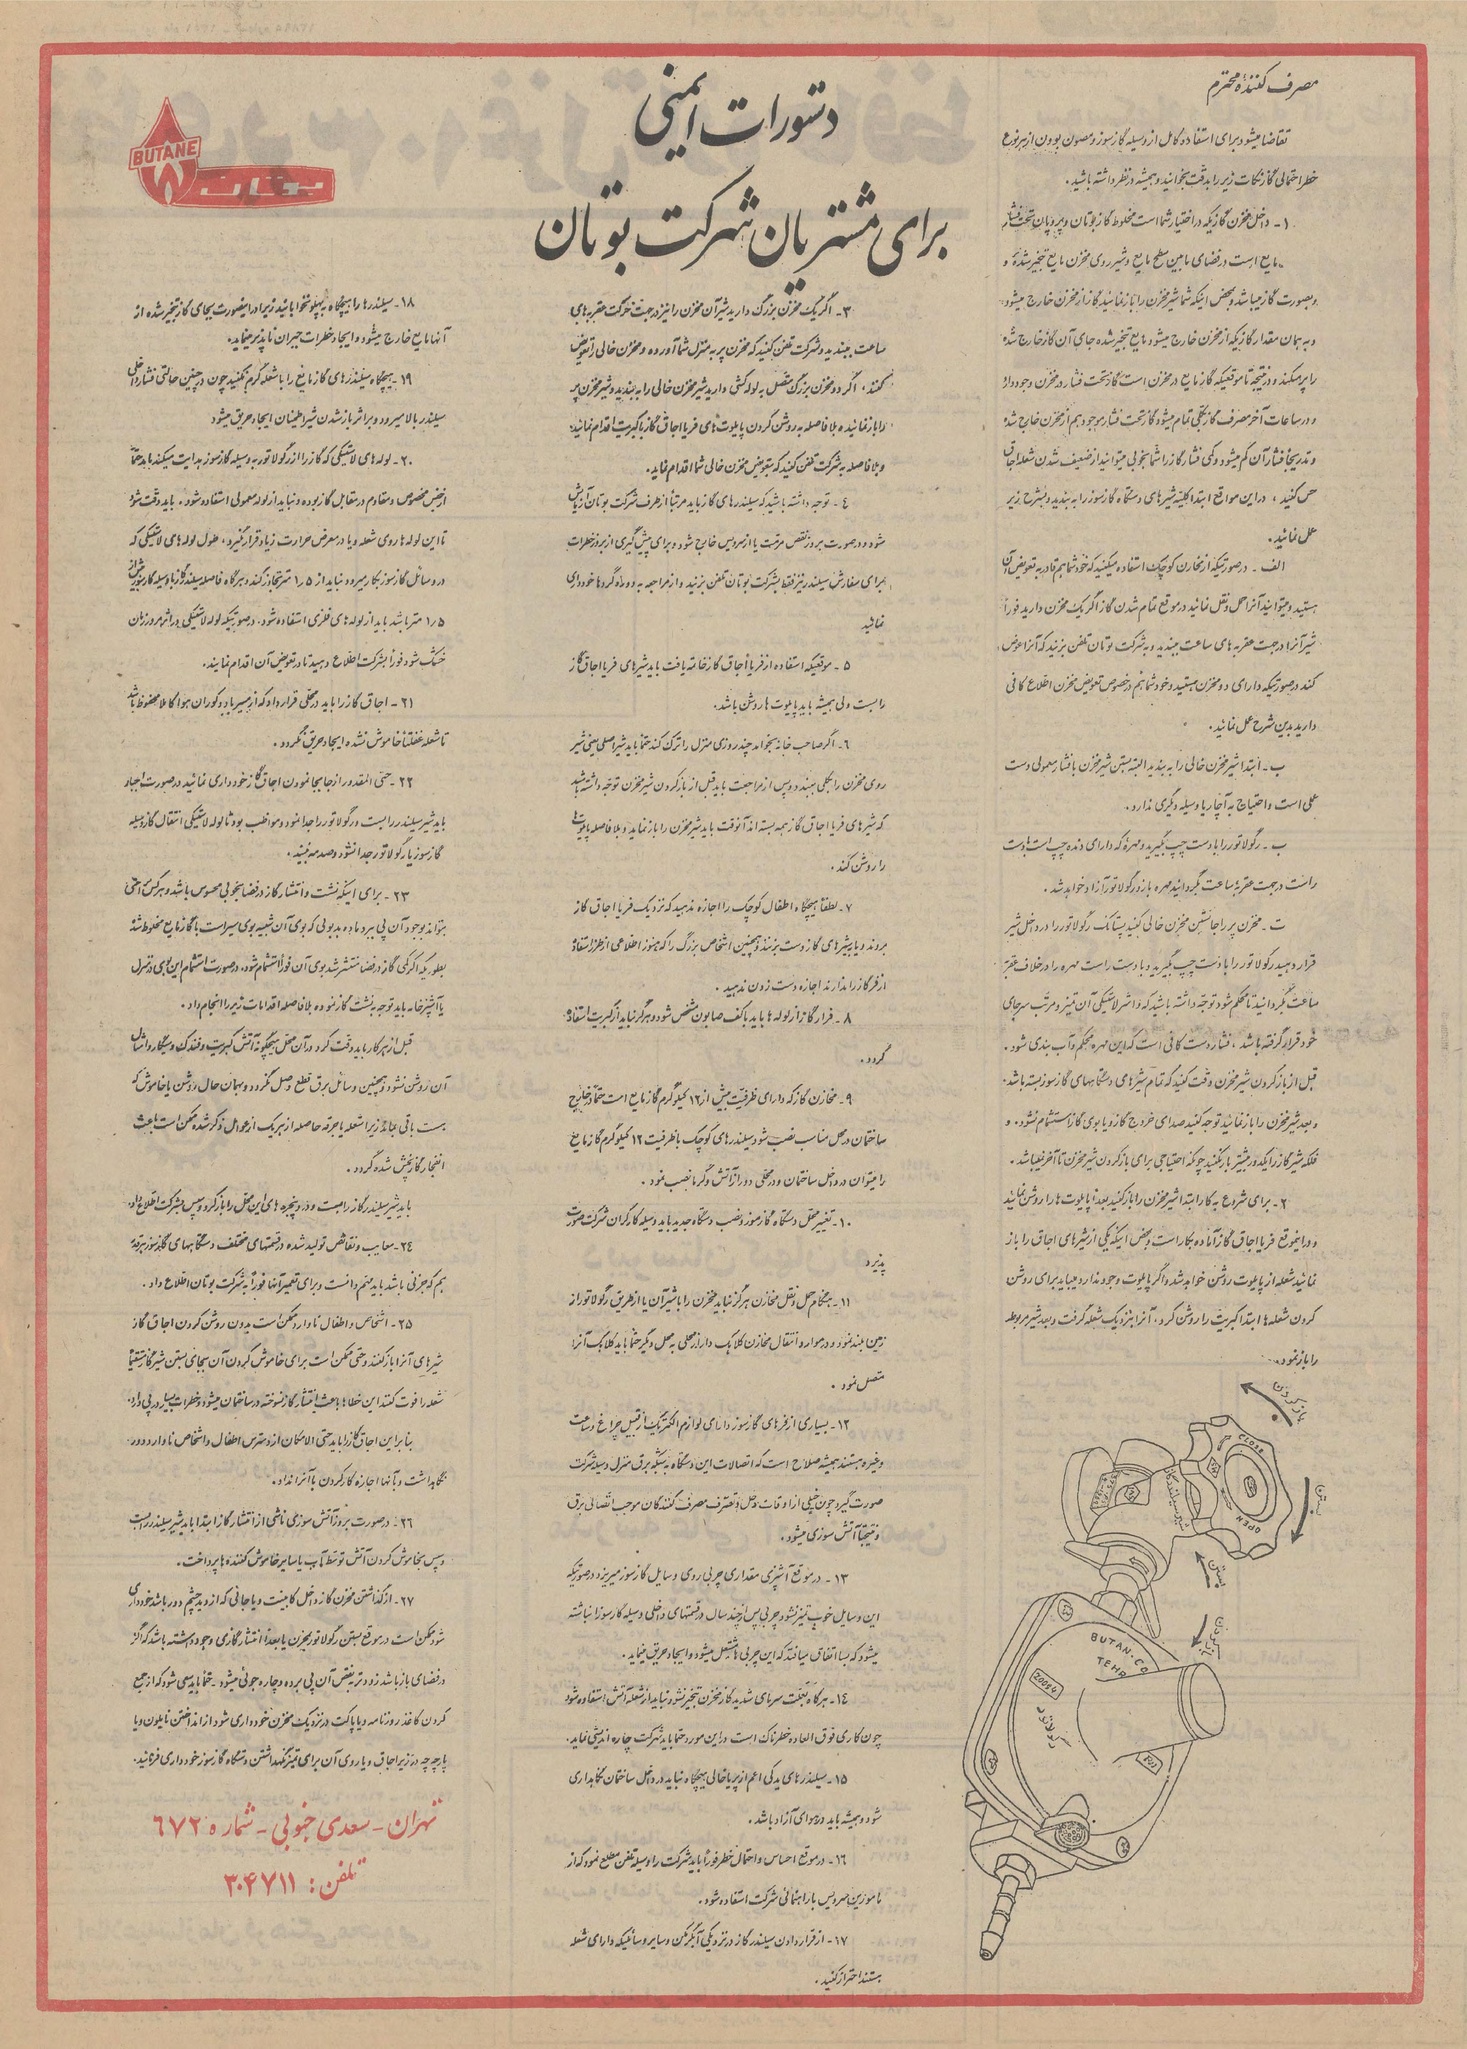 دستورات ایمنی
برای مشتریان شرکت بوتان
BUTANE
بوتان
مصرف کنندهٔ محترم
تقاضا میشود برای استفاده کامل از وسیله گازسوز و مصون بودن از هر نوع
خطر احتمالی گاز نکات زیر را بدقت بخوانید و همیشه در نظر داشته باشید.
۱- داخل مخزن گازیکه در اختیار شما است مخلوط گاز بوتان و پروپان تحت فشار
مایع است در فضای مابین سطح مایع و شیر روی مخزن مایع تبخیر شده و
بصورت گاز میباشد و بمحض اینکه شما شیر مخزن را باز نمائید گاز از مخزن خارج میشود
و به همان مقدار گازیکه از مخزن خارج میشود مایع تبخیر شده جای آن گاز خارج شده
را پر میکند و در نتیجه تا موقعیکه گاز مایع در مخزن است گاز تحت فشار در مخزن وجود دارد
و در ساعات آخر مصرف گاز بکلی تمام میشود گاز تحت فشار موجود هم از مخزن خارج شده
و بتدریج فشار آن کم میشود و کمی فشار گاز را شما بخوبی میتوانید از ضعیف شدن شعله اجاق
حس کنید ، در این مواقع ابتدا کلیه شیرهای دستگاه گازسوز را به بندید و بشرح زیر
عمل نمائید.
الف - در صورتیکه از مخازن کوچک استفاده میکنید که خود شما هم قادر به تعویض آن
هستید و میتوانید آنرا حمل و نقل نمائید در موقع تمام شدن گاز اگر یک مخزن دارید فوراً
شیر آنرا در جهت عقربه های ساعت ببندید و به شرکت بوتان تلفن بزنید که آنرا عوض
کند در صورتیکه دارای دو مخزن هستید و خود شما هم در خصوص تعویض مخزن اطلاع کافی
دارید بدین شرح عمل نمائید.
ب - ابتدا شیر مخزن خالی را به بندید البته بستن شیر مخزن با فشار معمولی دست
عملی است و احتیاج به آچار یا وسیله دیگری ندارد.
ب - رگولاتور را با دست چپ بگیرید و مهره که دارای دنده چپ است با دست
راست در جهت عقربهٔ ساعت بگردانید مهره باز و رگولاتور آزاد خواهد شد.
ت - مخزن پر را جانشین مخزن خالی کنید پستانک رگولاتور را در داخل شیر
قرار دهید رگولاتور را با دست چپ بگیرید و با دست راست مهره را در خلاف عقربه
ساعت بگردانید تا محکم شود توجه داشته باشید که واشر لاستیکی آن تمیز و مرتب سر جای
خود قرار گرفته باشد ، فشار دست کافی است که این مهره محکم و آب بندی شود.
قبل از باز کردن شیر مخزن دقت کنید که تمام شیرهای دستگاههای گازسوز بسته باشد.
و بعد شیر مخزن را باز نمائید توجه کنید صدای خروج گاز و یا بوی گاز استشمام نشود . و
فلکه شیر گاز را یکدور بیشتر باز نکنید چونکه احتیاجی برای باز کردن شیر مخزن تا آخر نمیباشد.
۲- برای شروع به کار ابتدا شیر مخزن را باز کنید بعداً پایلوت ها را روشن نمائید
و در اینموقع فر یا اجاق گاز آماده بکار است و بمحض اینکه یکی از شیرهای اجاق را باز
نمائید شعله از پایلوت روشن خواهد شد و اگر پایلوت وجود ندارد میباید برای روشن
کردن شعله ها ابتدا کبریت را روشن کرد ، آنرا بنزدیک شعله گرفت و بعد شیر مربوطه
را باز نمود.
باز کردن
بستن
CLOSE
OPEN
شیر سیلندر گاز
بستن
باز کردن
BUTAN.CO
TEHR
20054
رگولاتور
۳- اگر یک مخزن بزرگ دارید شیر آن مخزن را نیز در جهت حرکت عقربه های
ساعت ببندید و به شرکت تلفن کنید که مخزن پر به منزل شما آورده و مخزن خالی را تعویض
کنند ، اگر دو مخزن بزرگ متصل به لوله کشی دارید شیر مخزن خالی را به بندید و شیر مخزن پر
را باز نمائید بلافاصله به روشن کردن پایلوت های فر یا اجاق گاز با کبریت اقدام نمائید
و بلافاصله به شرکت تلفن کنید که بتعویض مخزن خالی شما اقدام نماید.
٤ - توجه داشته باشید که سیلندرهای گاز باید مرتباً از طرف شرکت بوتان آزمایش
شود و در صورت بروز نقص مرمت یا از سرویس خارج شود و برای پیش گیری از بروز خطرات
برای سفارش سیلندر نیز فقط بشرکت بوتان تلفن بزنید و از مراجعه به دوره گردها خودداری
نمائید
۵ - موقعیکه استفاده از فر یا اجاق گاز خاتمه یافت باید شیرهای فر یا اجاق گاز
را بست ولی همیشه باید پایلوت ها روشن باشد.
۶- اگر صاحب خانه بخواهد چند روزی منزل را ترک کند حتماً باید شیر اصلی یعنی شیر
روی مخزن را بکلی ببندد و پس از مراجعت باید قبل از باز کردن شیر مخزن توجه داشته باشد
که شیرهای فر یا اجاق گاز همه بسته اند آنوقت باید شیر مخزن را باز نماید و بلافاصله پایلوتها
را روشن کند .
۷- لطفاً هیچگاه اطفال کوچک را اجازه ندهید که نزدیک فر یا اجاق گاز
بروند و یا بشیرهای گاز دست بزنند و همچنین اشخاص بزرگ را که هنوز اطلاعی از طرز استفاده
از فر گاز را ندارند اجازه دست زدن ندهید .
۸- فرار گاز از لوله ها باید با کف صابون مشخص شود و هرگز نباید از کبریت استفاده
گردد.
۹- مخازن گاز که دارای ظرفیت بیش از ۱۲ کیلوگرم گاز مایع است حتماً در خارج
ساختمان در محل مناسب نصب شود سیلندرهای کوچک با ظرفیت ۱۲ کیلوگرم گاز مایع
را میتوان در داخل ساختمان و در محلی دور از آتش و گرما نصب نمود .
۱۰- تغییر محل دستگاه گازسوز و نصب دستگاه جدید باید وسیله کارگران شرکت صورت
پذیرد
۱۱- هنگام حمل و نقل مخازن هرگز نباید مخزن را با شیر آن یا از طریق رگولاتور از
زمین بلند نمود و در موارد انتقال مخازن کلاهک دار از محلی به محل دیگر حتماً باید کلاهک آنرا
متصل نمود .
۱۲- بسیاری از فرهای گازسوز دارای لوازم الکتریک از قبیل چراغ و ساعت
و غیره هستند همیشه صلاح است که اتصالات این دستگاه به شبکه برق منزل وسیله شرکت
صورت گیرد چون خیلی از اوقات دخل و تصرف مصرف کنندگان موجب اتصالی برق
و نتیجتاً آتش سوزی میشود .
۱۳- در موقع آشپزی مقداری چربی روی وسایل گازسوز میریزد در صورتیکه
این وسایل خوب تمیز نشود چربی پس از چند سال در قسمتهای داخلی وسیله گازسوز انباشته
میشود که بسا اتفاق میافتد که این چربی ها مشتعل میشود و ایجاد حریق مینماید .
۱٤- هر گاه بعلت سرمای شدید گاز مخزن تبخیر نشود نباید از شعله آتش استفاده شود
چون کاری فوق العاده خطرناک است در این مورد حتماً باید شرکت چاره اندیشی نماید.
۱۵- سیلندرهای یدکی اعم از پر یا خالی هیچگاه نباید در داخل ساختمان نگاهداری
شود و همیشه باید در هوای آزاد باشد .
۱۶- در موقع احساس و احتمال خطر فوراً باید شرکت را وسیله تلفن مطلع نمود که از
مامورین سرویس یا راهنمائی شرکت استفاده شود .
۱۷- از قرار دادن سیلندر گاز در نزدیکی آبگرمکن و سایر وسائلیکه دارای شعله
هستند احتراز کنید .
۱۸- سیلندرها را هیچگاه به پهلو نخوابانید زیرا در اینصورت بجای گاز تبخیر شده از
آنها مایع خارج میشود و ایجاد خطرات جبران ناپذیر مینماید.
۱۹- هیچگاه سیلندرهای گاز مایع را با شعله گرم نکنید چون در چنین حالتی فشار داخلی
سیلندر بالا میرود و بر اثر باز شدن شیر اطمینان ایجاد حریق میشود
۲۰- لوله های لاستیکی که گاز را از رگولاتور به وسیله گازسوز هدایت میکند باید حتماً
از جنس مخصوص و مقاوم در مقابل گاز بوده و نباید از لوله معمولی استفاده شود . باید دقت شود
تا این لوله ها روی شعله و یا در معرض حرارت زیاد قرار نگیرد ، طول لوله های لاستیکی که
در وسائل گازسوز بکار میرود نباید از ۱٫۵ متر تجاوز کند و هرگاه فاصله سیلندر گاز با وسیله گازسوز بیش از
۱٫۵ متر باشد باید از لوله های فلزی استفاده شود . در صورتیکه لوله لاستیکی در اثر مرور زمان
خشک شود فوراً بشرکت اطلاع دهید تا در تعویض آن اقدام نمایند.
۲۱- اجاق گاز را باید در محلی قرار داد که از مسیر باد و کوران هوا کاملاً محفوظ باشد
تا شعله غفلتاً خاموش نشده ایجاد حریق نگردد .
۲۲- حتی المقدور از جابجا نمودن اجاق گاز خودداری نمائید در صورت اجبار
باید شیر سیلندر را بست و رگولاتور را جدا نمود و مواظب بود تا لوله لاستیکی انتقال گاز وسیله
گازسوز یا رگولاتور جدا نشود و صدمه نبیند .
۲۳- برای اینکه نشت و انتشار گاز در فضا بخوبی محسوس باشد و هر کس حتی
بتواند بوجود آن پی ببرد ماده بدبوئی که بوی آن شبیه بوی سیر است با گاز مایع مخلوط شده
بطوریکه اگر کمی گاز در فضا منتشر شد بوی آن فوراً استشمام شود. در صورت استشمام این بوی در منزل
یا آشپزخانه باید توجه به نشت گاز نموده بلافاصله اقدامات زیر را انجام داد .
قبل از هر کار باید دقت کرد در آن محل هیچگونه آتش کبریت و فندک و سیگار و امثال
آن روشن نشود و همچنین وسائل برق قطع و وصل نگردد و بهمان حال روشن یا خاموش که
هست باقی بماند زیرا شعله یا جرقه حاصله از هر یک از عوامل ذکر شده ممکن است باعث
انفجار گاز پخش شده گردد .
باید شیر سیلندر گاز را بست و در و پنجره های این محل را باز کرد و سپس بشرکت اطلاع داد.
۲٤- معایب و نقائص تولید شده در قسمتهای مختلف دستگاههای گازسوز هر قدر
هم که جزئی باشد باید مهم دانست و برای تعمیر آنها فوراً به شرکت بوتان اطلاع داد .
۲۵- اشخاص و اطفال ناوارد ممکن است بدون روشن کردن اجاق گاز
شیرهای آنرا باز کنند و حتی ممکن است برای خاموش کردن آن بجای بستن شیر گاز مستقیماً
شعله را فوت کنند این خطاها باعث انتشار گاز نسوخته در ساختمان میشود و خطرات بسیار در پی دارد.
بنابراین اجاق گاز را باید حتی الامکان از دسترس اطفال و اشخاص ناوارد دور
نگاهداشت و بآنها اجازه کار کردن با آنرا نداد .
۲۶- در صورت بروز آتش سوزی ناشی از انتشار گاز ابتدا باید شیر سیلندر را بست
و سپس بخاموش کردن آتش توسط آب یا سایر خاموش کننده ها پرداخت .
۲۷- از گذاشتن مخزن گاز داخل کابینت و یا جائی که از دید چشم دور باشد خودداری
شود ممکن است در موقع بستن رگولاتور بمخزن یا بعداً انتشار گازی وجود داشته باشد که اگر
در فضای باز باشد زودتر بنقص آن پی برده و چاره جوئی میشود - حتماً باید سعی شود که از جمع
کردن کاغذ روزنامه و یا پاکت در نزدیک مخزن خودداری شود از انداختن نایلون و یا
پارچه در زیر اجاق و یا روی آن برای تمیز نگهداشتن دستگاه گازسوز خودداری فرمائید.
تهران - سعدی جنوبی - شماره ۶۷۲
تلفن : ۳۰۴۷۱۱